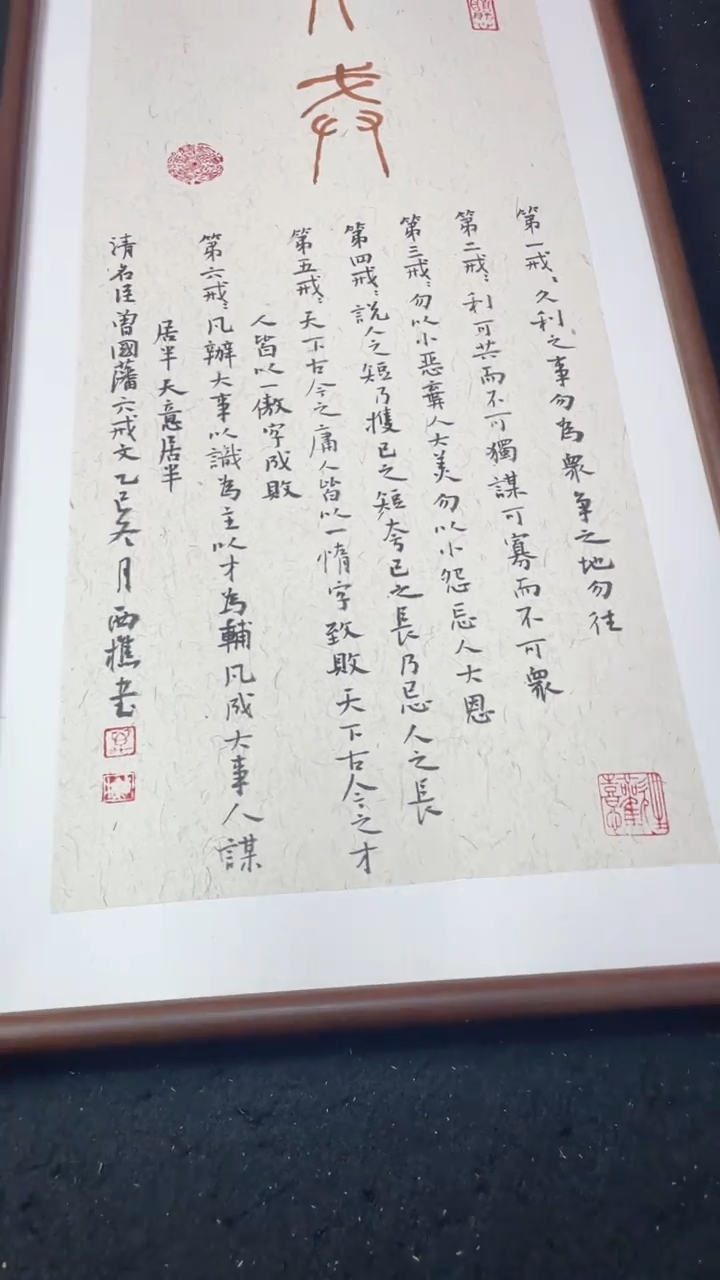 六戒
第一戒：久利之事勿為衆争之地勿往
第二戒：利可共而不可獨謀可寡而不可衆
第三戒：勿以小惡棄人大美勿以小怨忘人大恩
第四戒：説人之短乃護己之短夸己之長乃忌人之長
第五戒：天下古今之庸人皆以一惰字致敗天下古今之才
人皆以一傲字成敗
第六戒：凡辦大事以識為主以才為輔凡成大事人謀
居半天意居半
清名臣曽國藩六戒文乙巳冬月西樵書